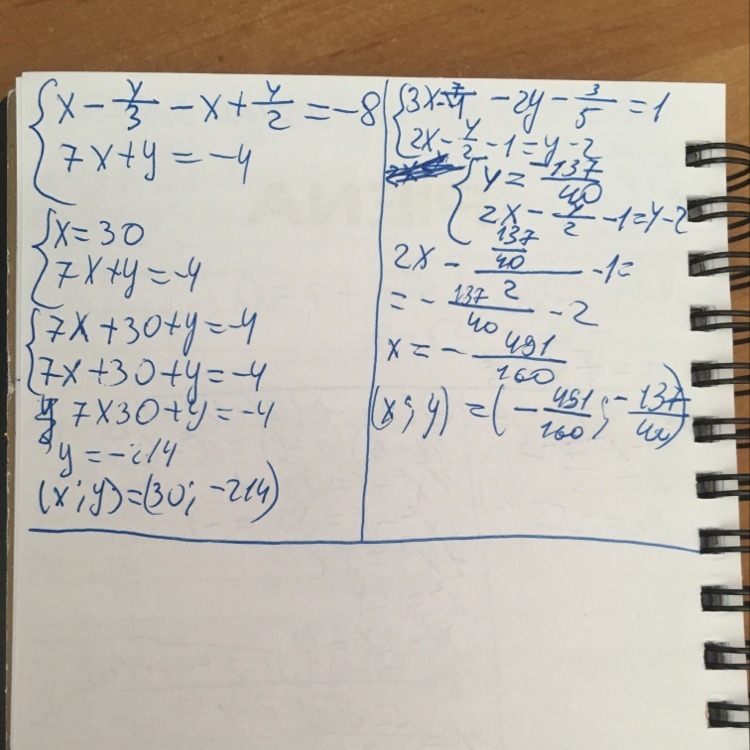 x - y/3 - x + y/2 = -8
7x + y = -4
x = 30
7x + y = -4
7x + 30 + y = -4
7x + 30 + y = -4
7x30 + y = -4
y = -214
(x; y) = (30; -214)
- 2y - 3/5 = 1
2x - y/2 - 1 = y - 2
y = - 137/40
2x - y/2 - 1 = y - 2
2x - 137/40 / 2 - 1 =
= - 137/40 - 2
x = - 491/160
(x; y) = (- 491/160; - 137/40)